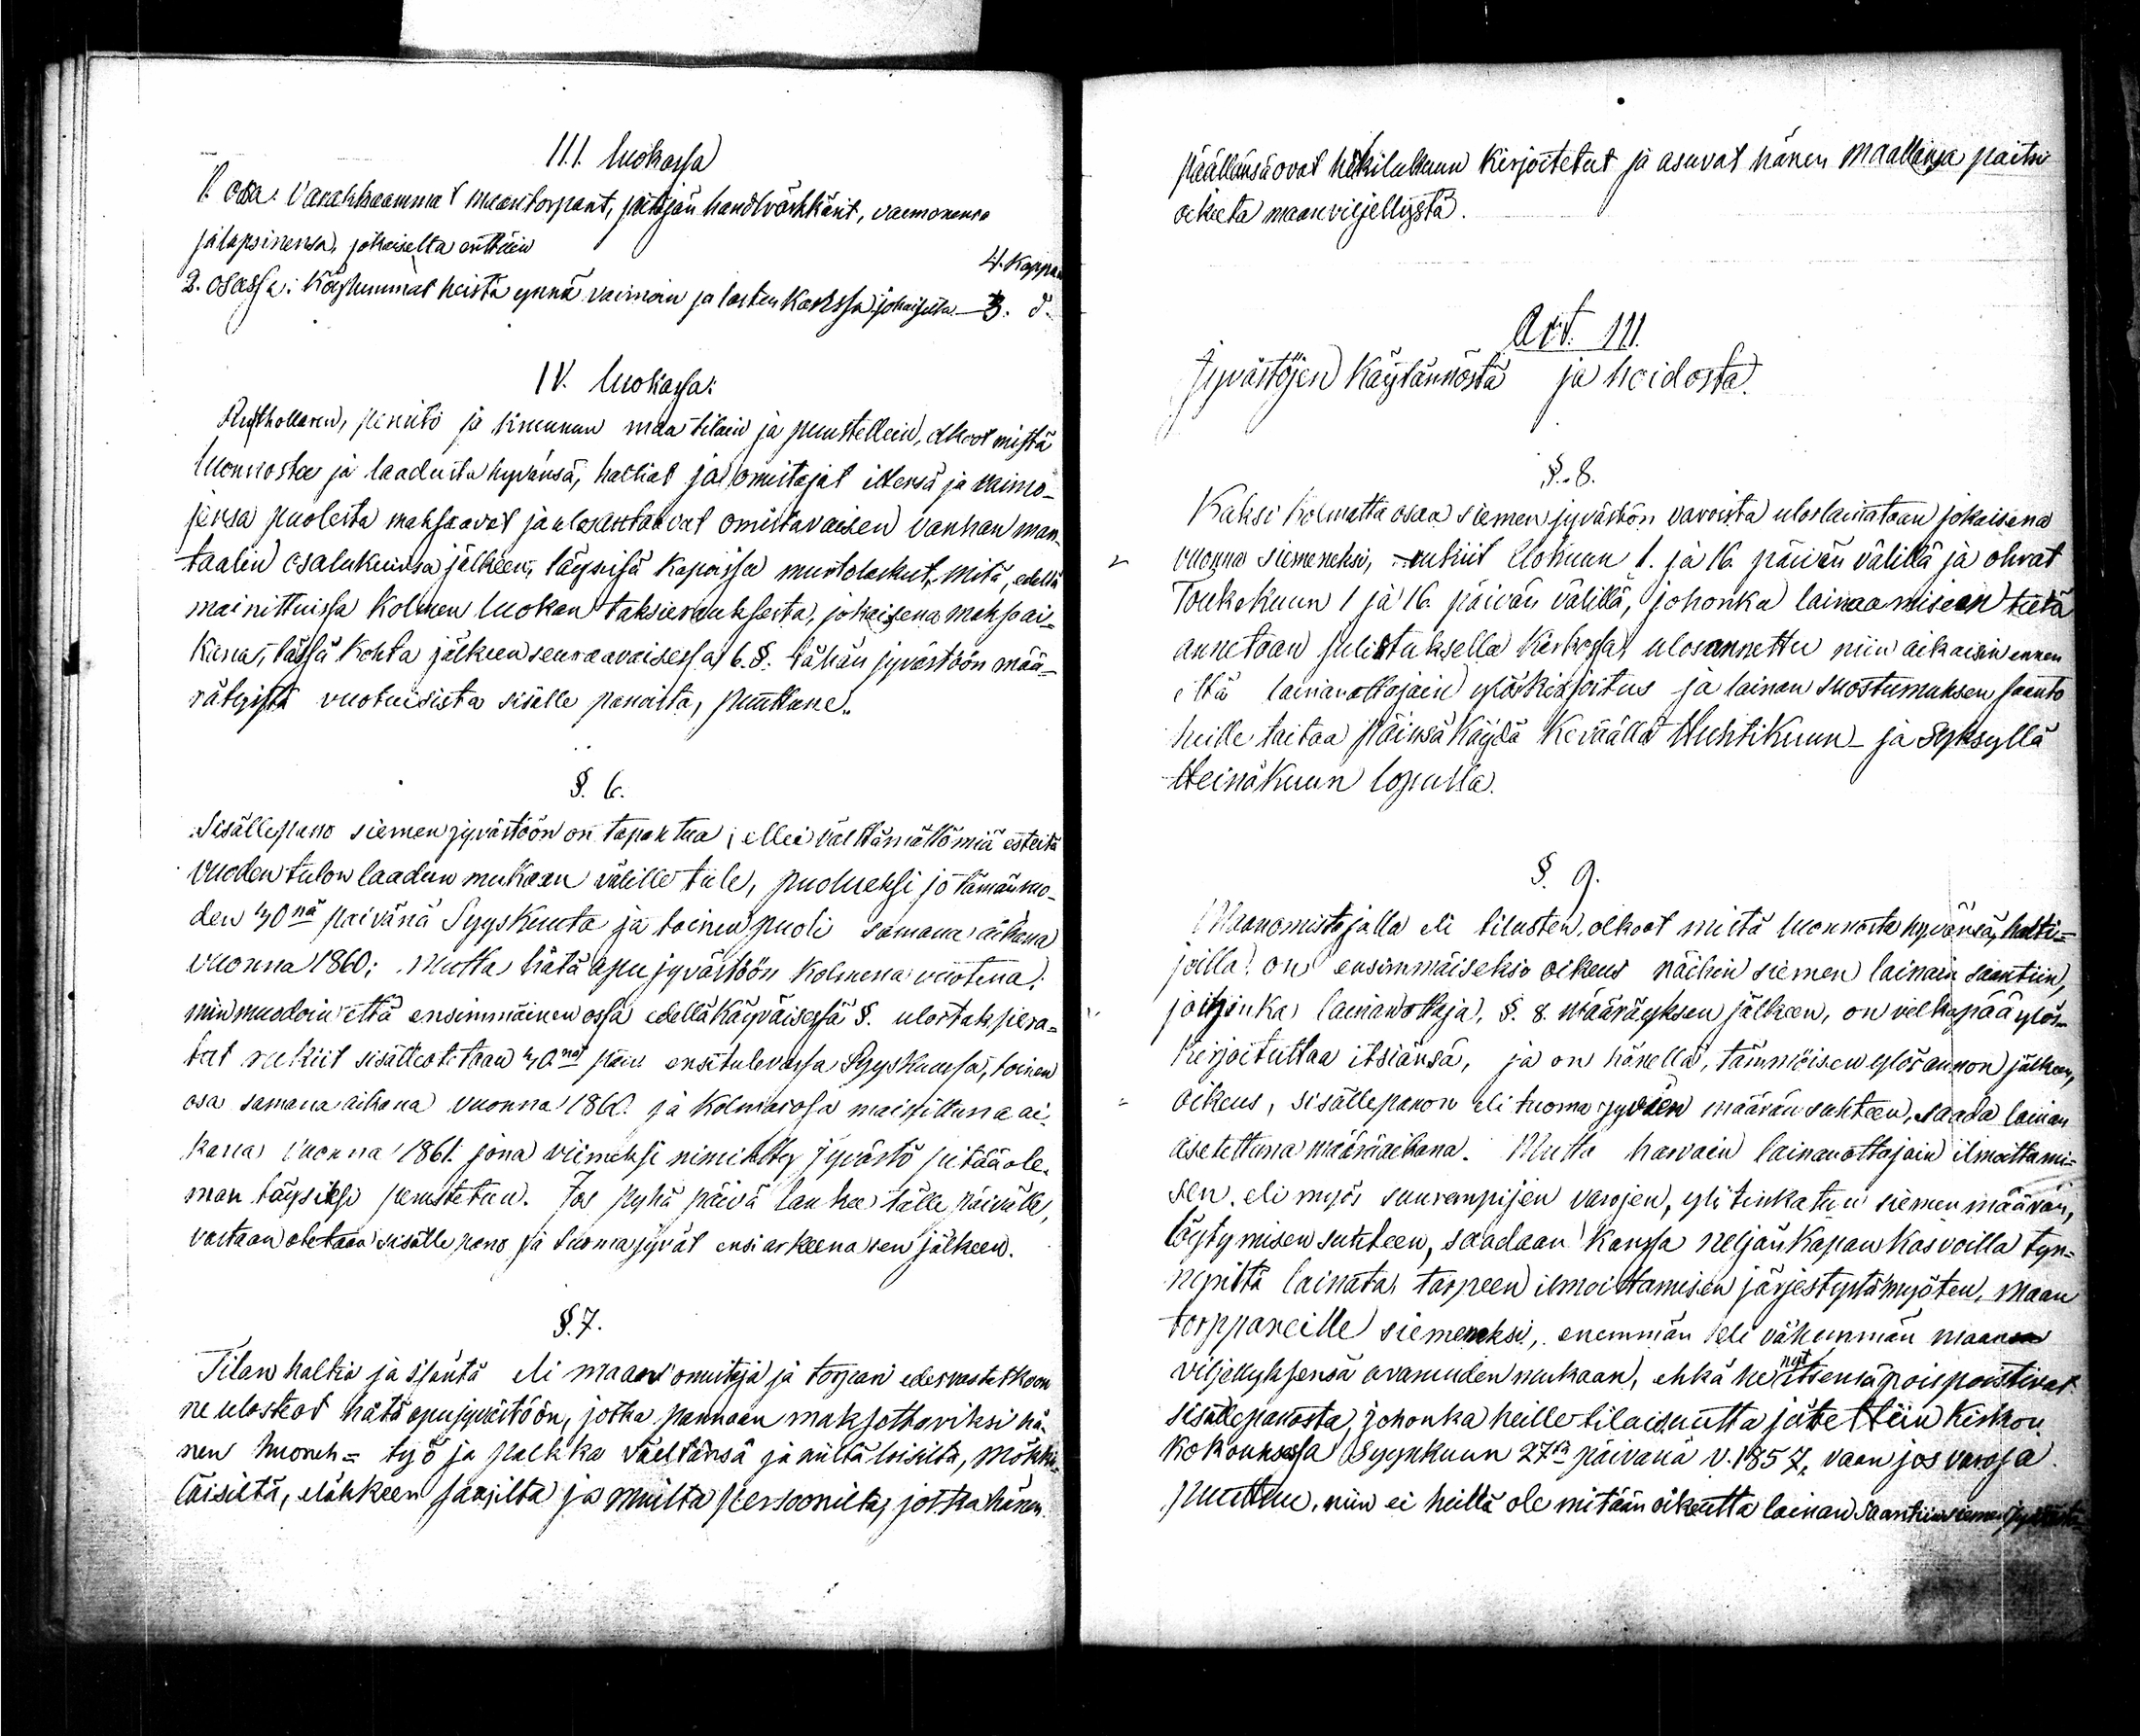 III. luokassa
1. osa: Varakkaammat maantorparit, pitäjän handtvärkkärit, vaemonensa
jalapsinensa, jokaiselta erittäin
4. kappaa
2. osassa: köyhemmat heistä ynnä vaimoin ja lasten kanssa jokaiselta — 3. d:
IV. luokassa:
Rusthollarein, perintö ja kruunun maa tilain ja puustellein, olkoot mistä
luonnosta ja laadusta hyvänsä, haltiat ja omistajat itsensä ja vaimo-
jensa puolesta maksaavat ja ulosantaavat omistavaisen vanhan man-
taalin osalukuinsa jälkeen, täysissä kapoissa murtoluvut, mitä, edellä
mainittuissa kolmen luokan taksierauksesta, jokaisena maksoai-
kana, tässä kohta jälkeen seuraavaisessa 6. §. tähän jyvästöön mää-
rätyistä vuotuisista sisälle panoista, puuttune.
§. 6.
Sisällepano siemenjyvästöön on tapahtua, ellei välttämättömiä esteitä
vuoden tulon laadun mukaan välille tule, puolueksi jo tämän vuo-
den 30nä paivänä Syyskuuta ja toinen puoli samana aikana
vuonna 1860; Mutta hätä apujyvästöön kolmena vuotena;
min muodoin että ensimmäinen ossa edelläkäyväisessä §. ulostakseera-
tut rukiit sisälleotetaan 30nä päiv. ensitulevassa Syyskuussa, toinen
osa samana aikana vuonna 1860. ja kolmasosa mainittuna ai-
kana vuonna 1861. jona viimeksi nimitetty jyvästö pitää ole-
man täysiksi perustettu. Jos pyhä päivä lankee tälle päivälle,
vastaan otetaan sisälle pano ja tuomajyvät ensi arkeena sen jälkeen.
§. 7.
Tilan haltia ja isäntä eli maan omistaja ja torpari edesvastatkoon
ne ulosteot hätä apujyvästöön, jotka pannaan maksettaviksi hä-
nen huoneh= työ ja palkka väeltänsä ja niiltä loisilta, mökki-
läisiltä, eläkkeen saajilta ja muilta persoonilta, jotka hänen
päällensä ovat hekilukuun kirjoitetut ja asuvat hänen maallansa paitsi
oikeeta maanviljellystä.
Art. III.
Jyvästöjen Käytännöstä ja hoidosta.
§. 8.
Kaksi kolmatta osaa siemen jyvästön varoista uloslainataan jokaisena
vuonna siemeneksi, rukiit Elokuun 1. ja 16. päivän välillä ja ohrat
Toukokuun 1 ja 16. päivän välillä, johonka lainaamiseen tietä
annetaan julistuksella kirkossa ulosannettu niin aikaisin ennen
että lainanottajain ylöskirjoitus ja lainan suostumuksen saanto
heille taitaa päinsä käydä keväällä Huhtikuun- ja Syksyllä
Heinäkuun lopulla.
§. 9.
Maanomistajalla eli tilusten, olkoot mistä luonnosta hyvänsä, halti-
joilla on ensimmäiseksi oikeus näihin siemen lainain saantiin,
joihinka lainanottaja, §. 8. määräyksen jälkeen, on velkapää ylös-
kirjoituttaa itsiänsä, ja on hänellä, tämmöisen ylösannon jälkeen,
oikeus, sisällepanon eli tuoma jyväin määrän suhteen, saada lainan
asetettuna määräaikana. Mutta harvain lainanottajain ilmoittami-
sen eli myös suurempijen varojen, yli tinkatun siemen määrän,
löytymisen suhteen, saadaan kanssa neljän kapan kasvoilla tyn-
nyriltä lainata, tarpeen ilmoittamisen järjestystä myöten, maan
torppareille siemeneksi, enemmän eli vähemmän maan
viljellyksensä avaruuden mukaan, ehkä he nyt itsensä pois poistivat
sisällepanosta, johonka heille tilaisuutta jätettiin Kiskon
kokouksessa Syyskuun 27tä päivänä v. 1857, vaan jos varoja
puuttuu, niin ei heillä ole mitään oikeutta lainan saantiin siemenjyvästä-